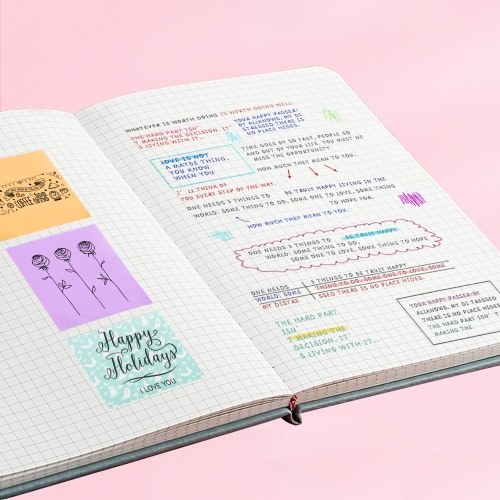 COFFEE
Happy
Holidays
I LOVE YOU
WHATEVER IS WORTH DOING IS WORTH DOING WELL.
THE HARD PART ISN'
T MAKING THE DECISION. IT'
S LIVING WITH IT...
YOUR HAPPY PASSER-
BY ALLKNOWS, MY DI
STRESSED THERE IS
NO PLACE HIDES.
LOVE IS NOT
A MAYBE THING.
YOU KNOW
WHEN YOU
TIME GOES BY SO FAST, PEOPLE GO
AND OUT OF YOUR LIFE. YOU MUST NE
MISS THE OPPORTUNITY
HOW MUCH THEY MEAN TO YOU.
I' LL THINK OF
YOU EVERY STEP OF THE WAY.
ONE NEEDS 3 THINGS TO BE TRULY HAPPY LIVING IN THE
WORLD: SOME THING TO DO, SOME ONE TO LOVE, SOME THING
TO HOPE FOR.
HOW MUCH THEY MEAN TO YOU.
ONE NEEDS 3 THINGS TO BE TRULY HAPPY
WORLD: SOME THING TO DO,
SOME ONE TO LOVE, SOME THING TO HOPE
ONE NEEDS 3 THINGS TO BE TRULY HAPPY
WORLD: SOME THING TO DO, SOME ONE TO LOVE, SOME
MY DISTRE SSED THERE IS NO PLACE HIDES.
THE HARD PART
ISN'
T MAKING THE
DECISION. IT'
S LIVING WITH IT...
YOUR HAPPY PASSER-BY
ALL KNOWS, MY DI STRESSED
THERE IS NO PLACE HIDES.
THE HARD PART ISN' T
MAKING THE